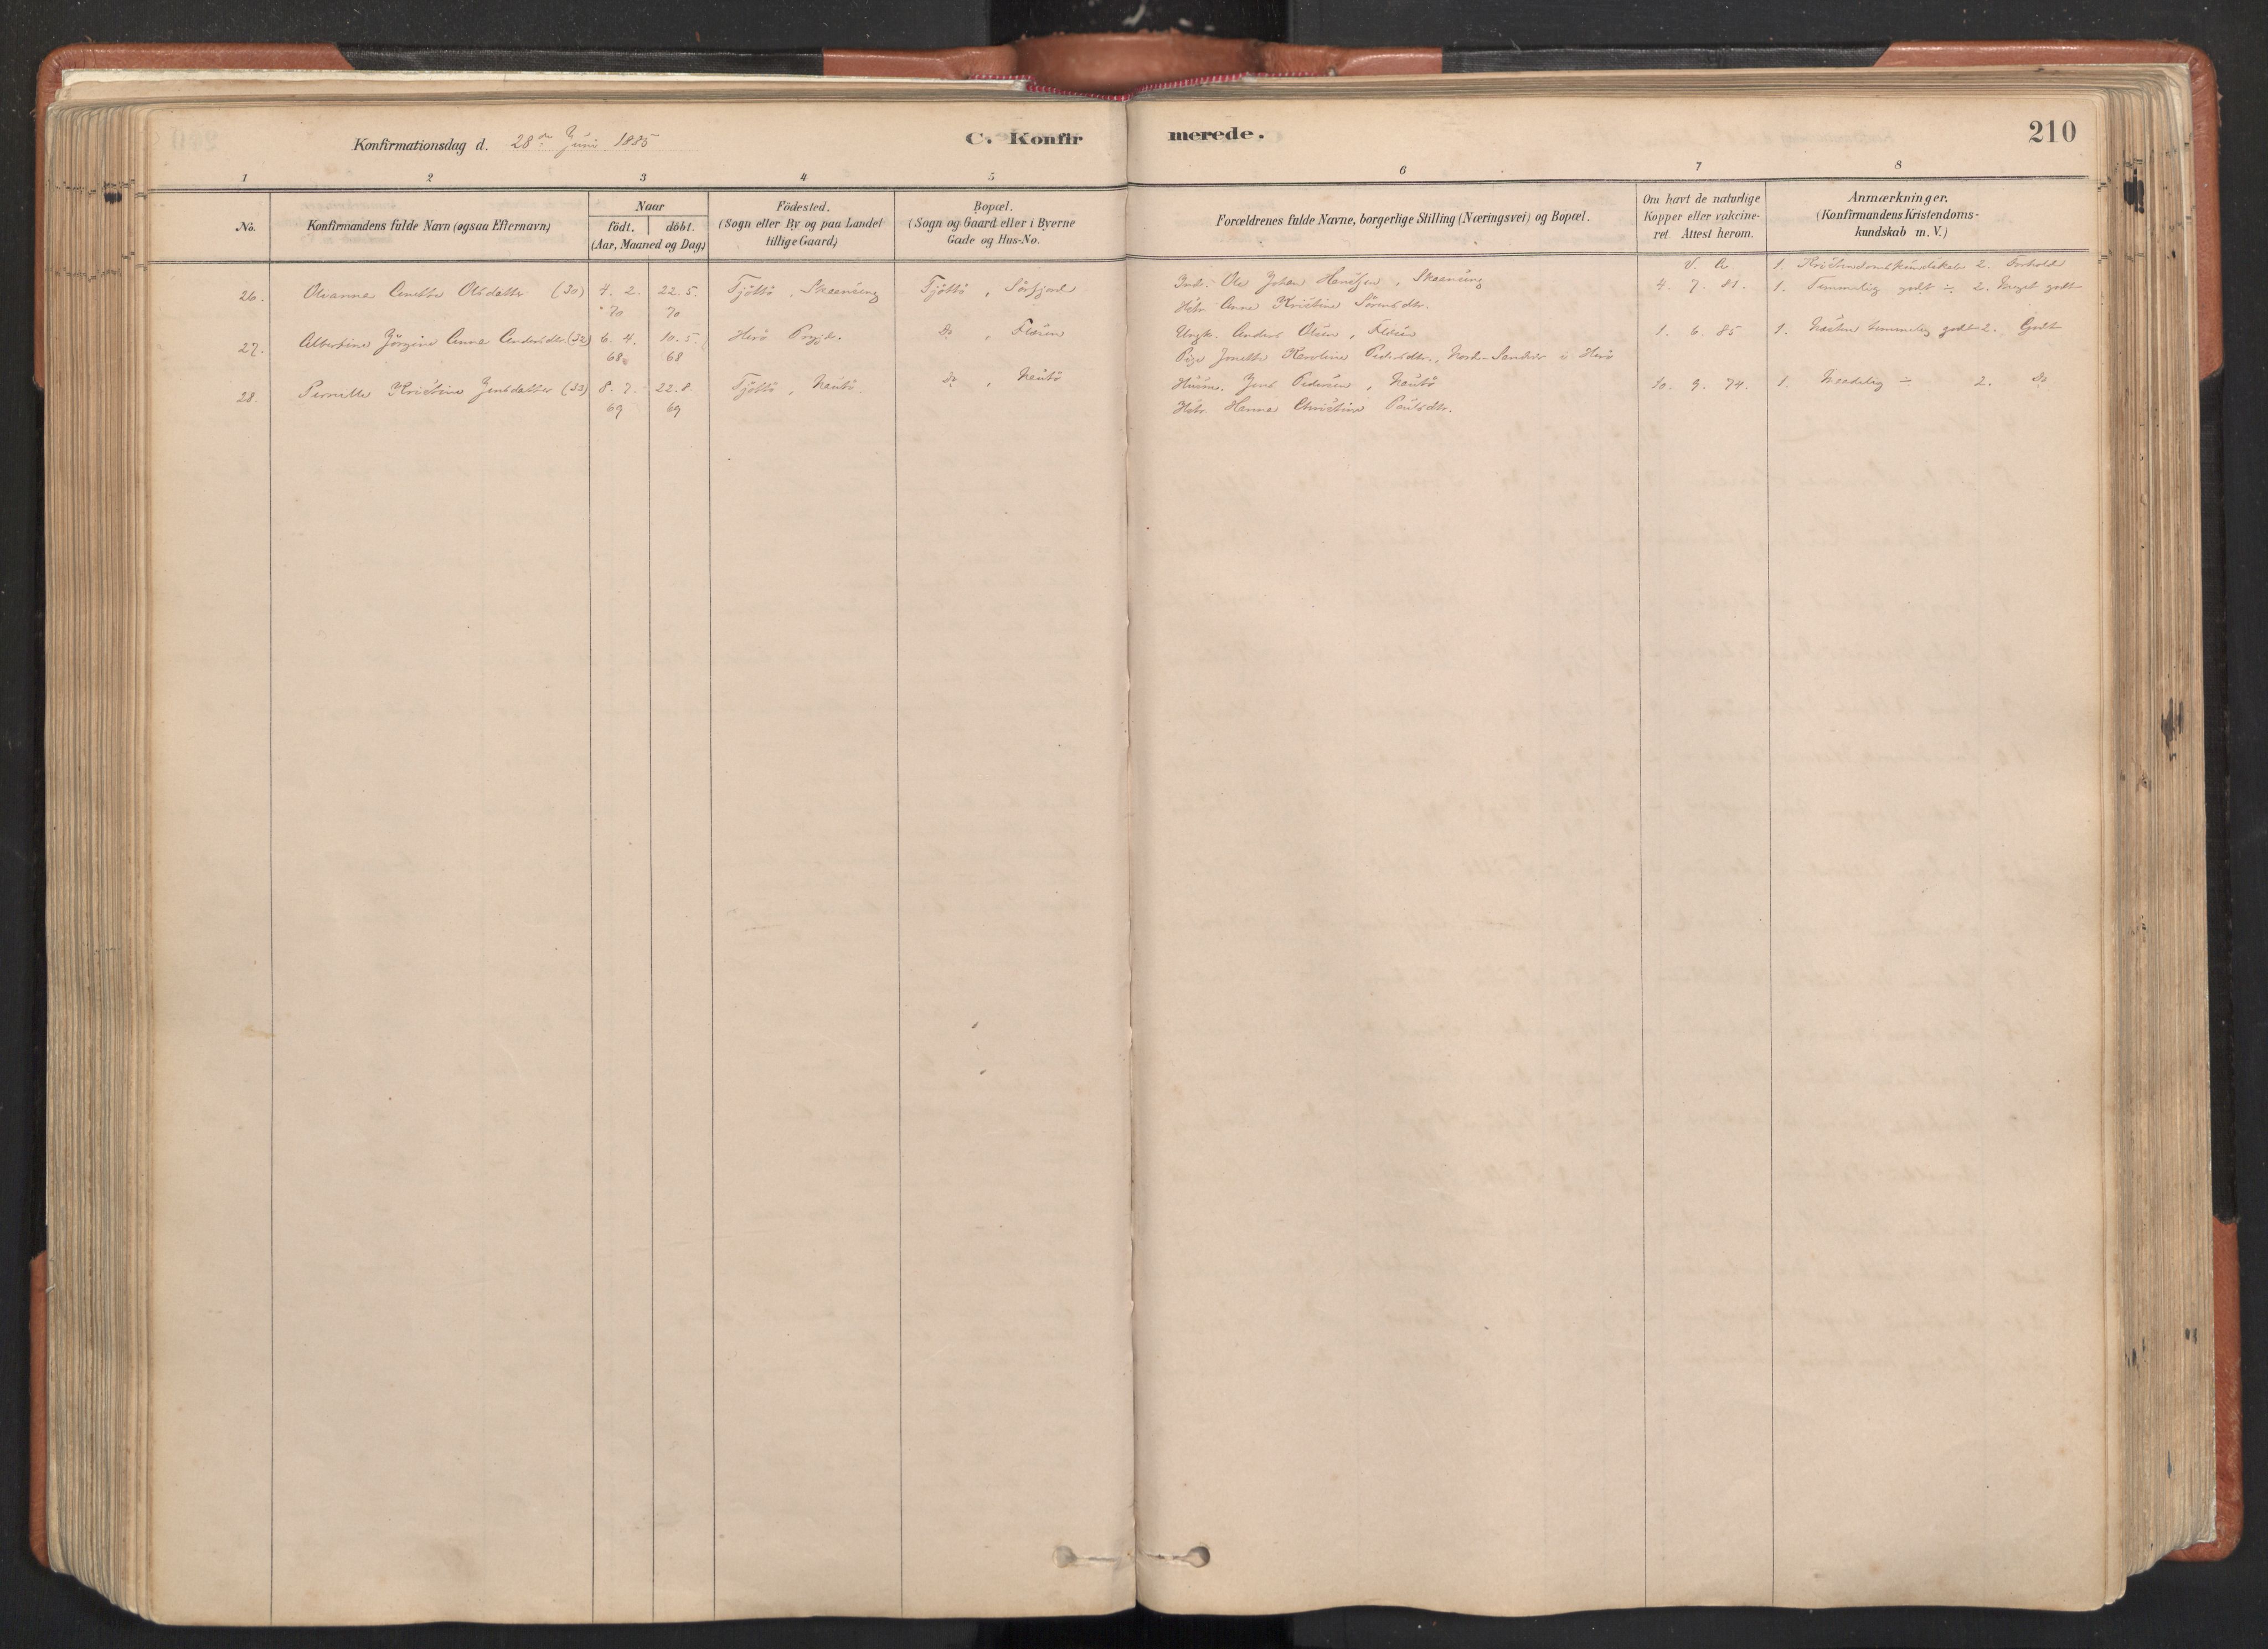 Konfirmationsdag d. 28de Juni 1885
C. Konfirmerede.
210
1 2 3 4 5 6 7 8
No.
Konfirmandens fulde Navn (ogsaa Efternavn)
Naar
födt. döbt.
(Aar, Maaned og Dag)
Födested.
(Sogn eller By og paa Landet
tillige Gaard)
Bopæl.
(Sogn og Gaard eller i Byerne
Gade og Hus-No.
Forældrenes fulde Navne, borgerlige Stilling (Næringsvei) og Bopæl.
Om havt de naturlige
Kopper eller vakcine-
ret Attest herom.
Anmærkninger.
(Konfirmandens Kristendoms-
kundskab m. V.)
V. A. 1. Kristendomskundskab 2. Forhold
26. Olvanna Anette Olsdatter (30) 4. 2. 22. 5. Tjöttö, Skaanseng Tjöttö, Sörfjord Ole Johan Hansen, Skaanseng 4. 7. 81. 1. Temmelig godt ÷ 2. Meget godt
70 70 Hstr. Anne Kristine Sörensdtr.
27. Albertine Jörgine Anna Andersdtr. (32) 6. 4. 10. 5. Herö Prgjd. Do, Flæsen Ungk. Anders Olsen, Flæsen 1. 6. 85 1. Næsten temmelig godt 2. Godt
68 68 Pige Jonette Karoline Pedersdtr., Nordre Sandvær i Herö
28. Pernille Kristine Jensdatter (33) 8. 7. 22. 8. Tjöttö, Nautö Do, Nautö Husm. Jens Pedersen, Nautö 10. 9. 74. 1. Maadelig ÷ 2. Do
69 69 Hstr. Hanna Christine Paulsdtr.